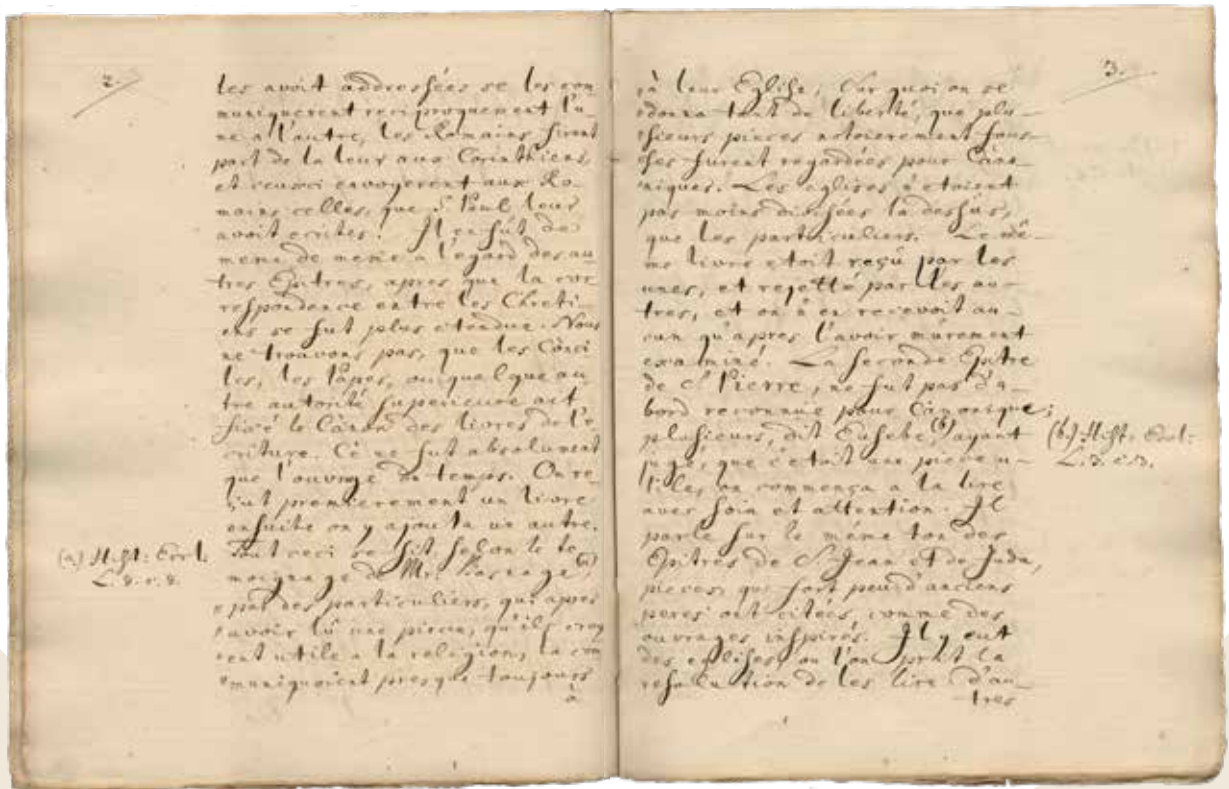 2.
les avoit addressées se les com
muniquerent reciproquement l'u-
ne a l'autre, les Romains firent
part de la leur aux Corinthiens,
et ceusci envoyerent aux Ro-
mains celles, que S. Paul leur
avoit ecrites. Il en fût de
meme de meme a l'égard des au
tres Epitres, apres que la cor
respondance entre les Chreti-
ens se fut plus etendue. Nous
ne trouvons pas, que les Conci
les, les Papes, ou quelque au
tre autorité superieure ait
fixé le Cànon des livres de l'e
criture. Cè ne fut absolument
que l'ouvrage du temps. On re
çut premierement un livre
ensuite on y ajouta un autre.
Tout ceci se fit, selon le te
moignage de Mr. Basnage (a)
par des particuliers, qui apres
avoir lû une piece, qu'ils croy
oient utile a la religion, la com
muniquoient presque toujours
à
(a) Hist: Eccl.
L. 8. c. 8.
3.
à leur Eglise, Sur quoi on se
donna tant de liberté, que plu-
sieurs pieces notoirement faus-
ses furent regardées pour Cano-
niques. Les eglises n'etoient
pas moins divisées la dessus,
que les particuliers. Le mê-
me livre etoit reçû par les
unes, et rejetté par les au-
tres, et on n'en recevoit au-
cun qu'apres l'avoir mûrement
examiné. La seconde Epitre
de S. Pierre, ne fut pas d'a-
bord reconnue pour Cànonique;
plusieurs, dit Eusebe, (b) ayant
jugé, que c'etoit une piece u-
tile, on commença a la lire
avec soin et attention. Il
parle sur le même ton des
Epitres de S. Jean et de Juda,
pieces, que fort peu d'anciens
peres ont citées, comme des
ouvrages inspirés. Il y eut
des eglises, ou l'on prit la
resolution de les lire d'au-
tres
(b) Hist: Eccl:
L. 3. c. 3.